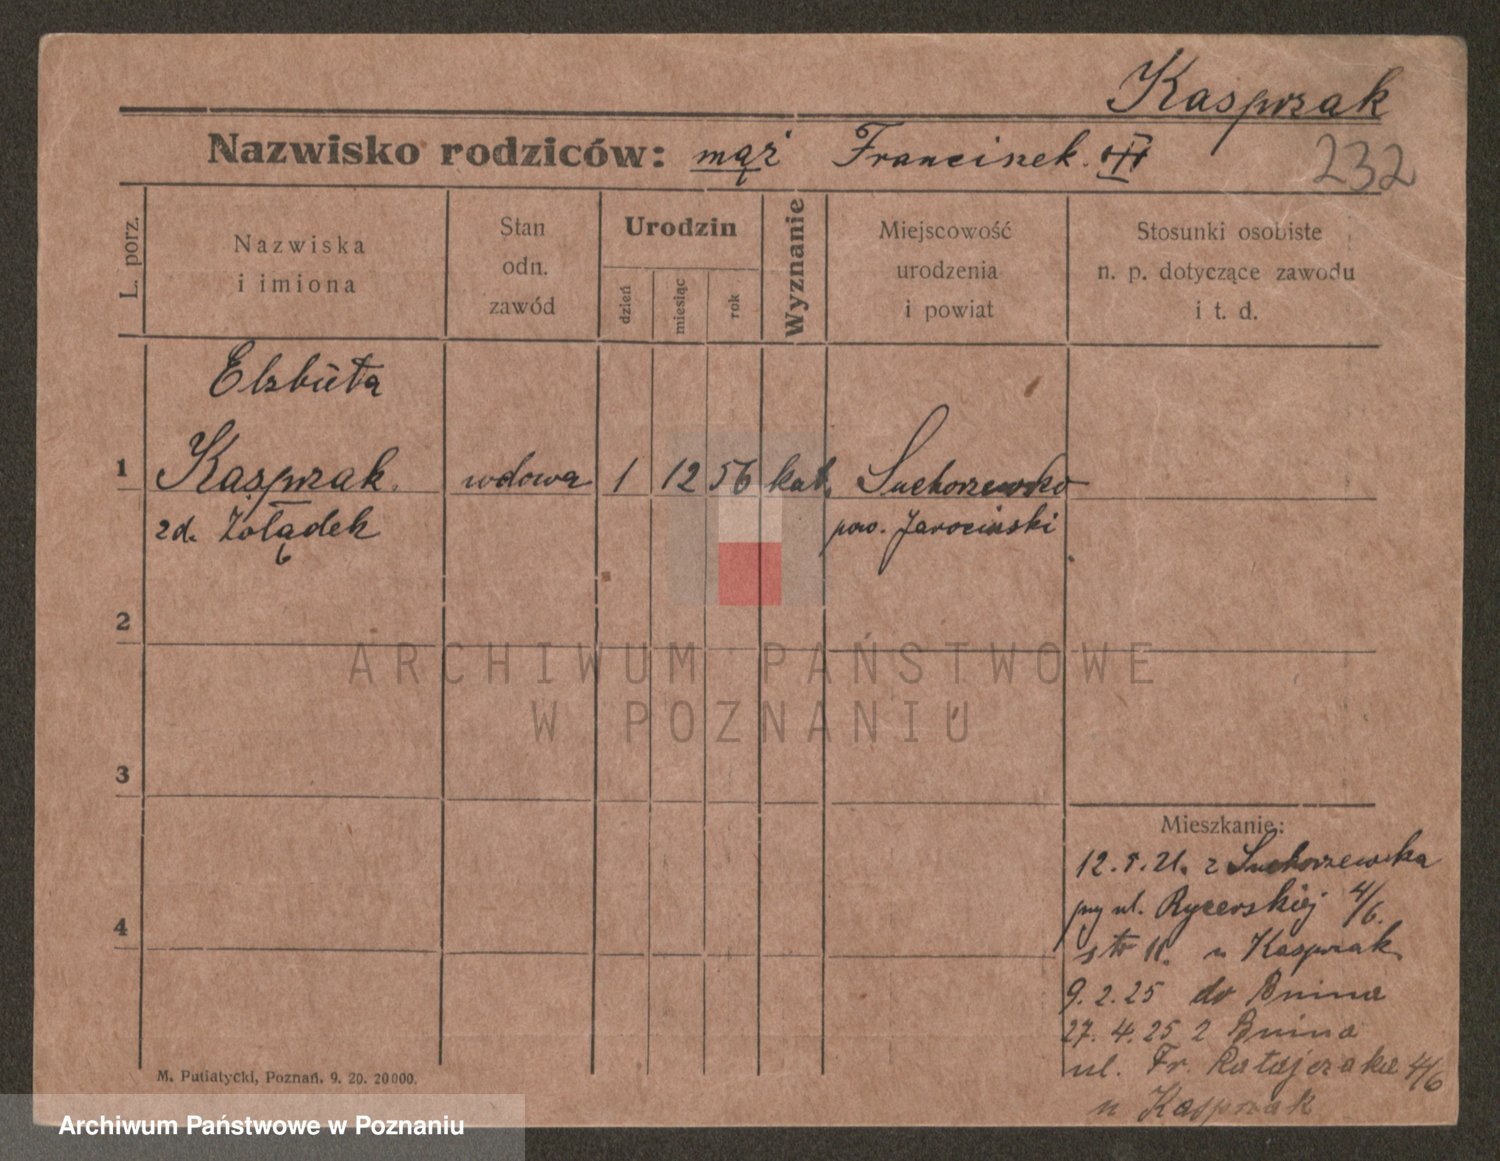 Kasprzak
Nazwisko rodziców: mąż Franciszek
232
L. porz.
Nazwiska
i imiona
Stan
odn.
zawód
Urodzin
dzień
miesiąc
rok
Wyznanie
Miejscowość
urodzenia
i powiat
Stosunki osobiste
n. p. dotyczące zawodu
i t. d.
Elżbieta
1 Kasprzak wdowa 1 12 56 kat. Suchorzewko
zd. Żołądek pow. Jarociński
2
ARCHIWUM PAŃSTWOWE
W POZNANIU
3
Mieszkanie:
12.5.21. z Suchorzewka
przy ul. Rycerskiej 4/6.
4
str II. u Kasprzak
9.2.25 do Bnina
27.4.25 z Bnina
ul. Fr. Ratajczaka 4/6
u Kasprzak
M. Putiatycki, Poznań. 9. 20. 20000.
Archiwum Państwowe w Poznaniu